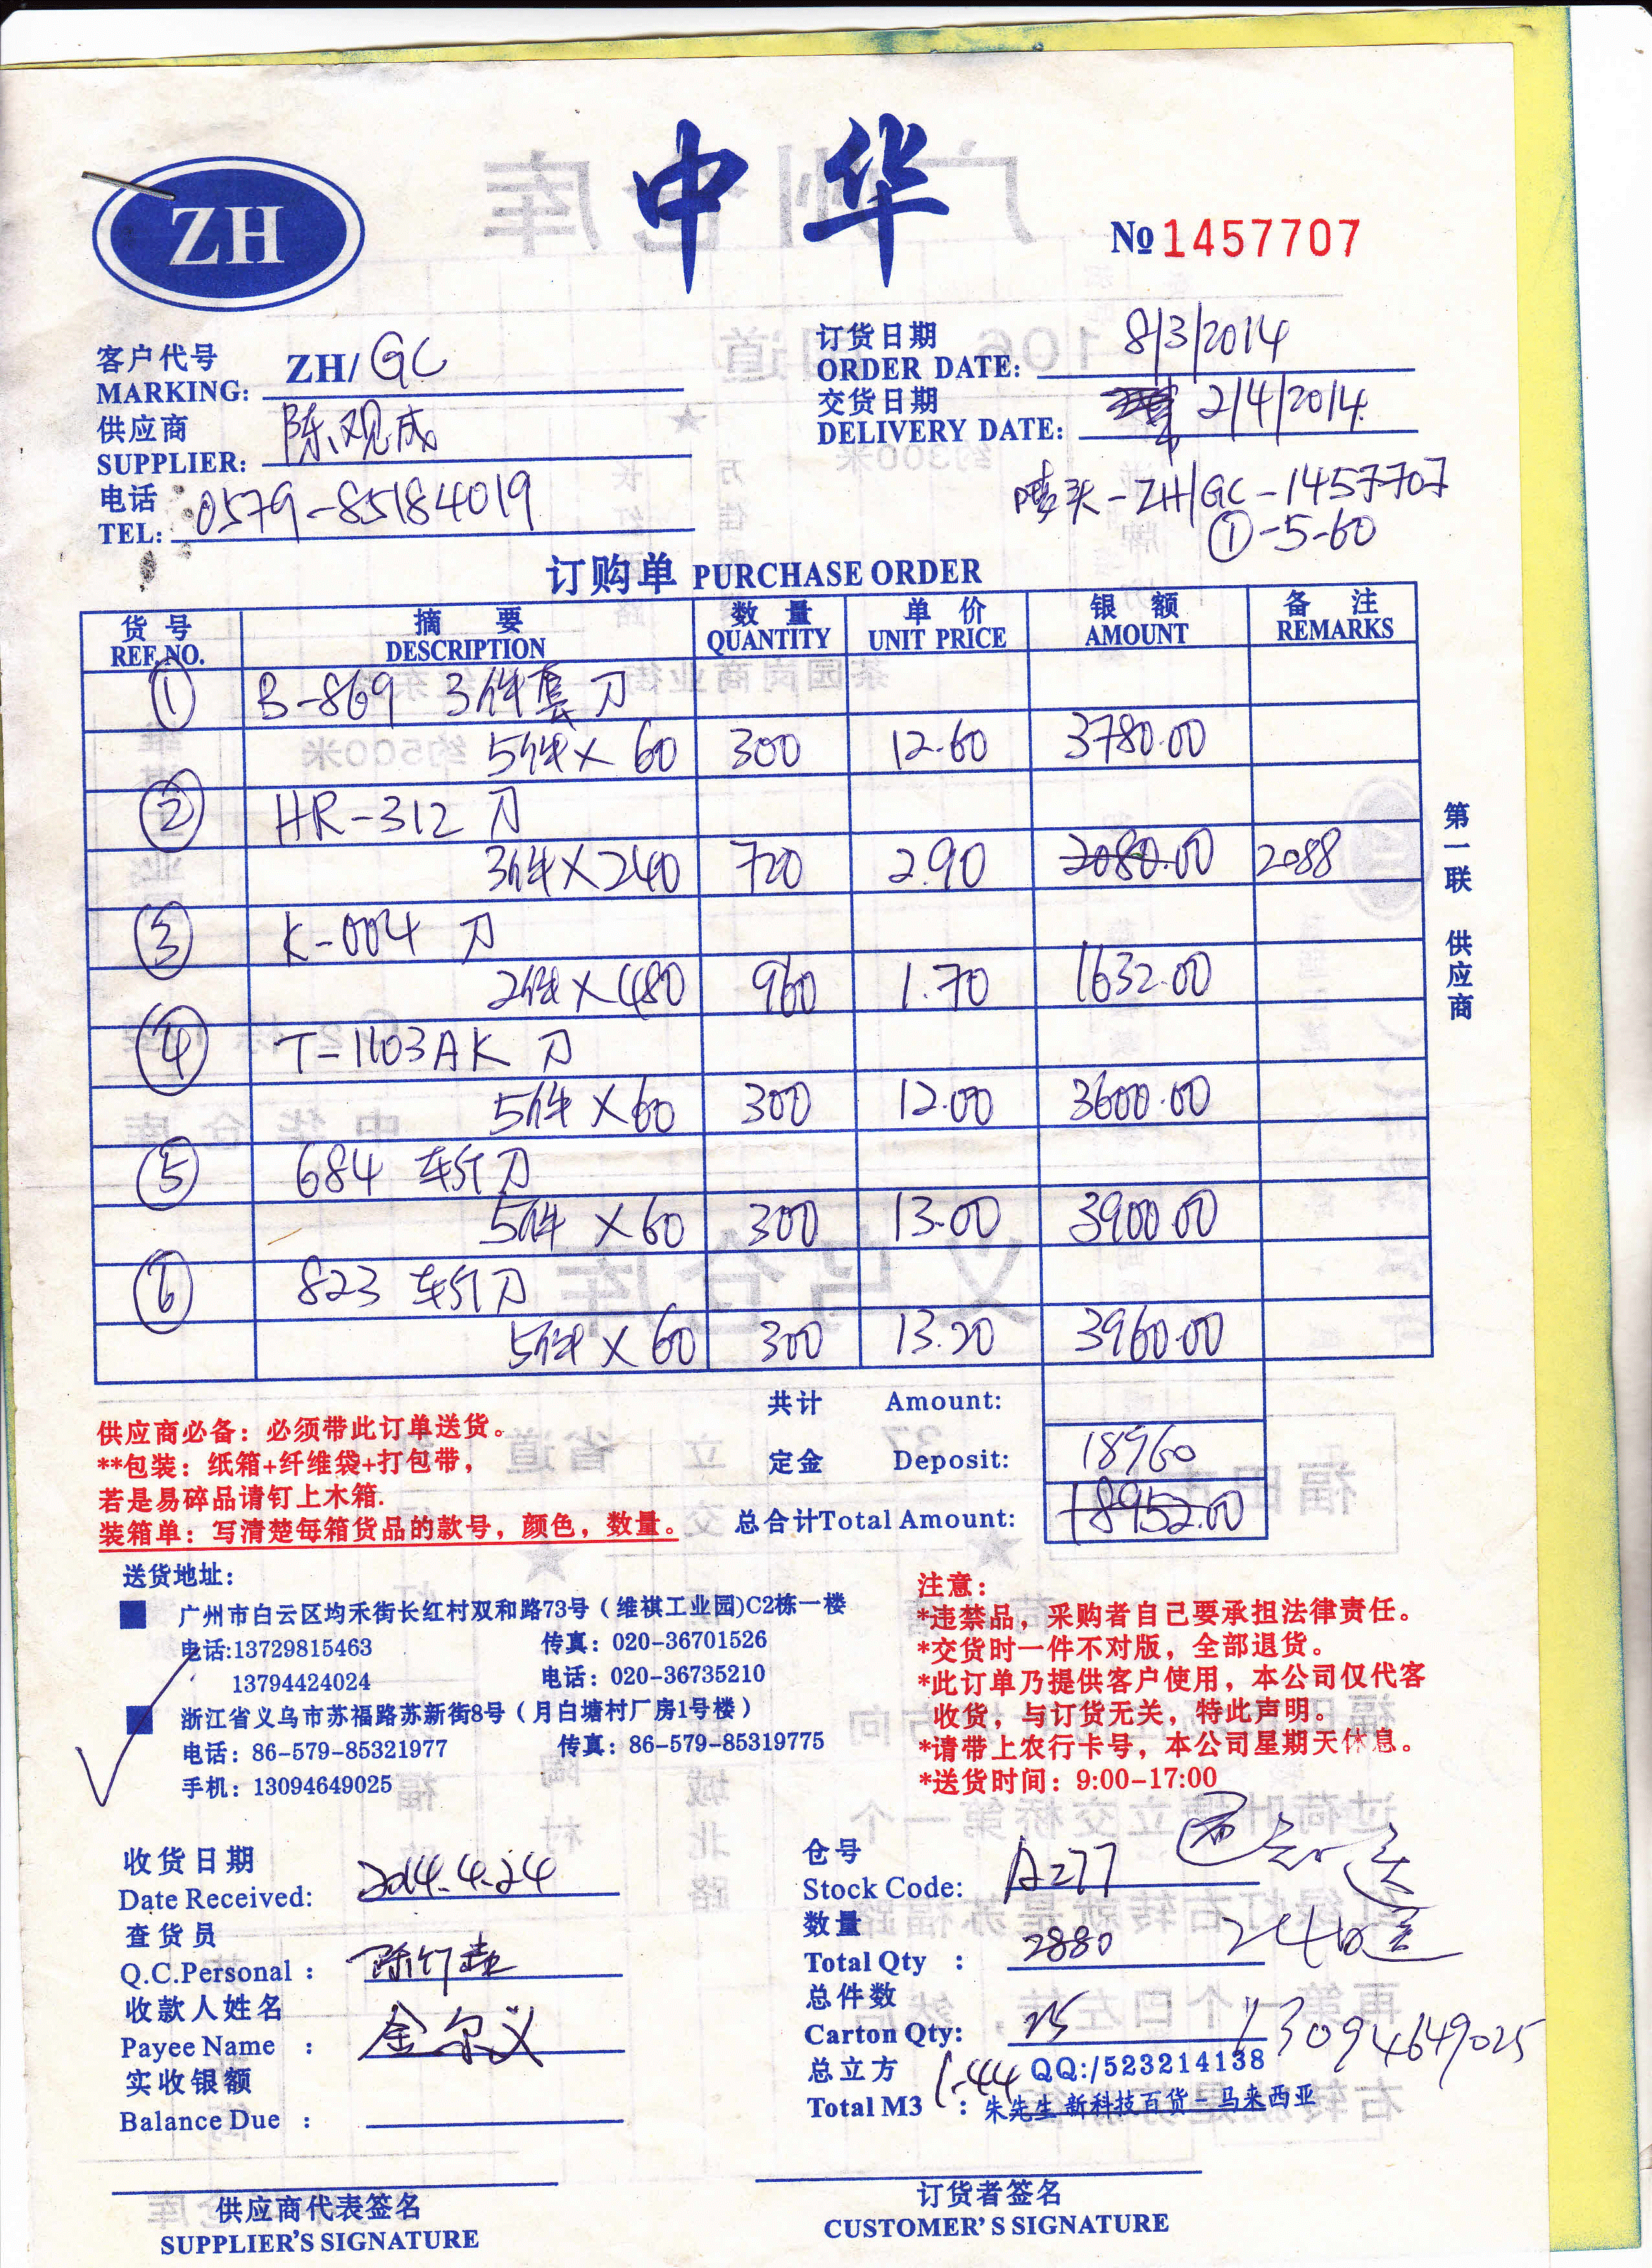 中华
ZH
№ 1457707
客户代号
MARKING: ZH/ GC
订货日期
ORDER DATE: 8/3/2014
供应商
SUPPLIER: 陈观成
交货日期
DELIVERY DATE: 2/4/2014
电话
TEL: 0579-85184019
唛头-ZH/GC-1457707
①-5-60
订购单 PURCHASE ORDER
货号 摘要 数量 单价 银额 备注
REF. NO. DESCRIPTION QUANTITY UNIT PRICE AMOUNT REMARKS
① B-869 3件套刀
5件×60 300 12.60 3780.00
② HR-312 刀
3件×240 720 2.90 2080.00 2088
③ K-004 刀
2件×480 960 1.70 1632.00
④ T-1103AK 刀
5件×60 300 12.00 3600.00
⑤ 684 刀
5件×60 300 13.00 3900.00
⑥ 823 刀
5件×60 300 13.20 3960.00
第一联 供应商
共计 Amount:
定金 Deposit: 18960
总合计Total Amount: 18952.00
供应商必备：必须带此订单送货。
**包装：纸箱+纤维袋+打包带，
若是易碎品请钉上木箱.
装箱单：写清楚每箱货品的款号，颜色，数量。
送货地址：
广州市白云区均禾街长红村双和路73号（维祺工业园)C2栋一楼
电话:13729815463 传真：020-36701526
13794424024 电话：020-36735210
浙江省义乌市苏福路苏新街8号（月白塘村厂房1号楼）
电话：86-579-85321977 传真：86-579-85319775
手机：13094649025
注意：
*违禁品，采购者自己要承担法律责任。
*交货时一件不对版，全部退货。
*此订单乃提供客户使用，本公司仅代客
收货，与订货无关，特此声明。
*请带上农行卡号，本公司星期天休息。
*送货时间：9:00-17:00
收货日期
Date Received: 2014.4.24
查货员
Q.C.Personal :
收款人姓名
Payee Name : 金尔义
实收银额
Balance Due :
仓号
Stock Code: A277
数量
Total Qty : 2880
总件数
Carton Qty: 25
13094649025
总立方
Total M3 : 1.44
QQ:/523214138
朱先生 新科技百货-马来西亚
供应商代表签名
SUPPLIER'S SIGNATURE
订货者签名
CUSTOMER'S SIGNATURE